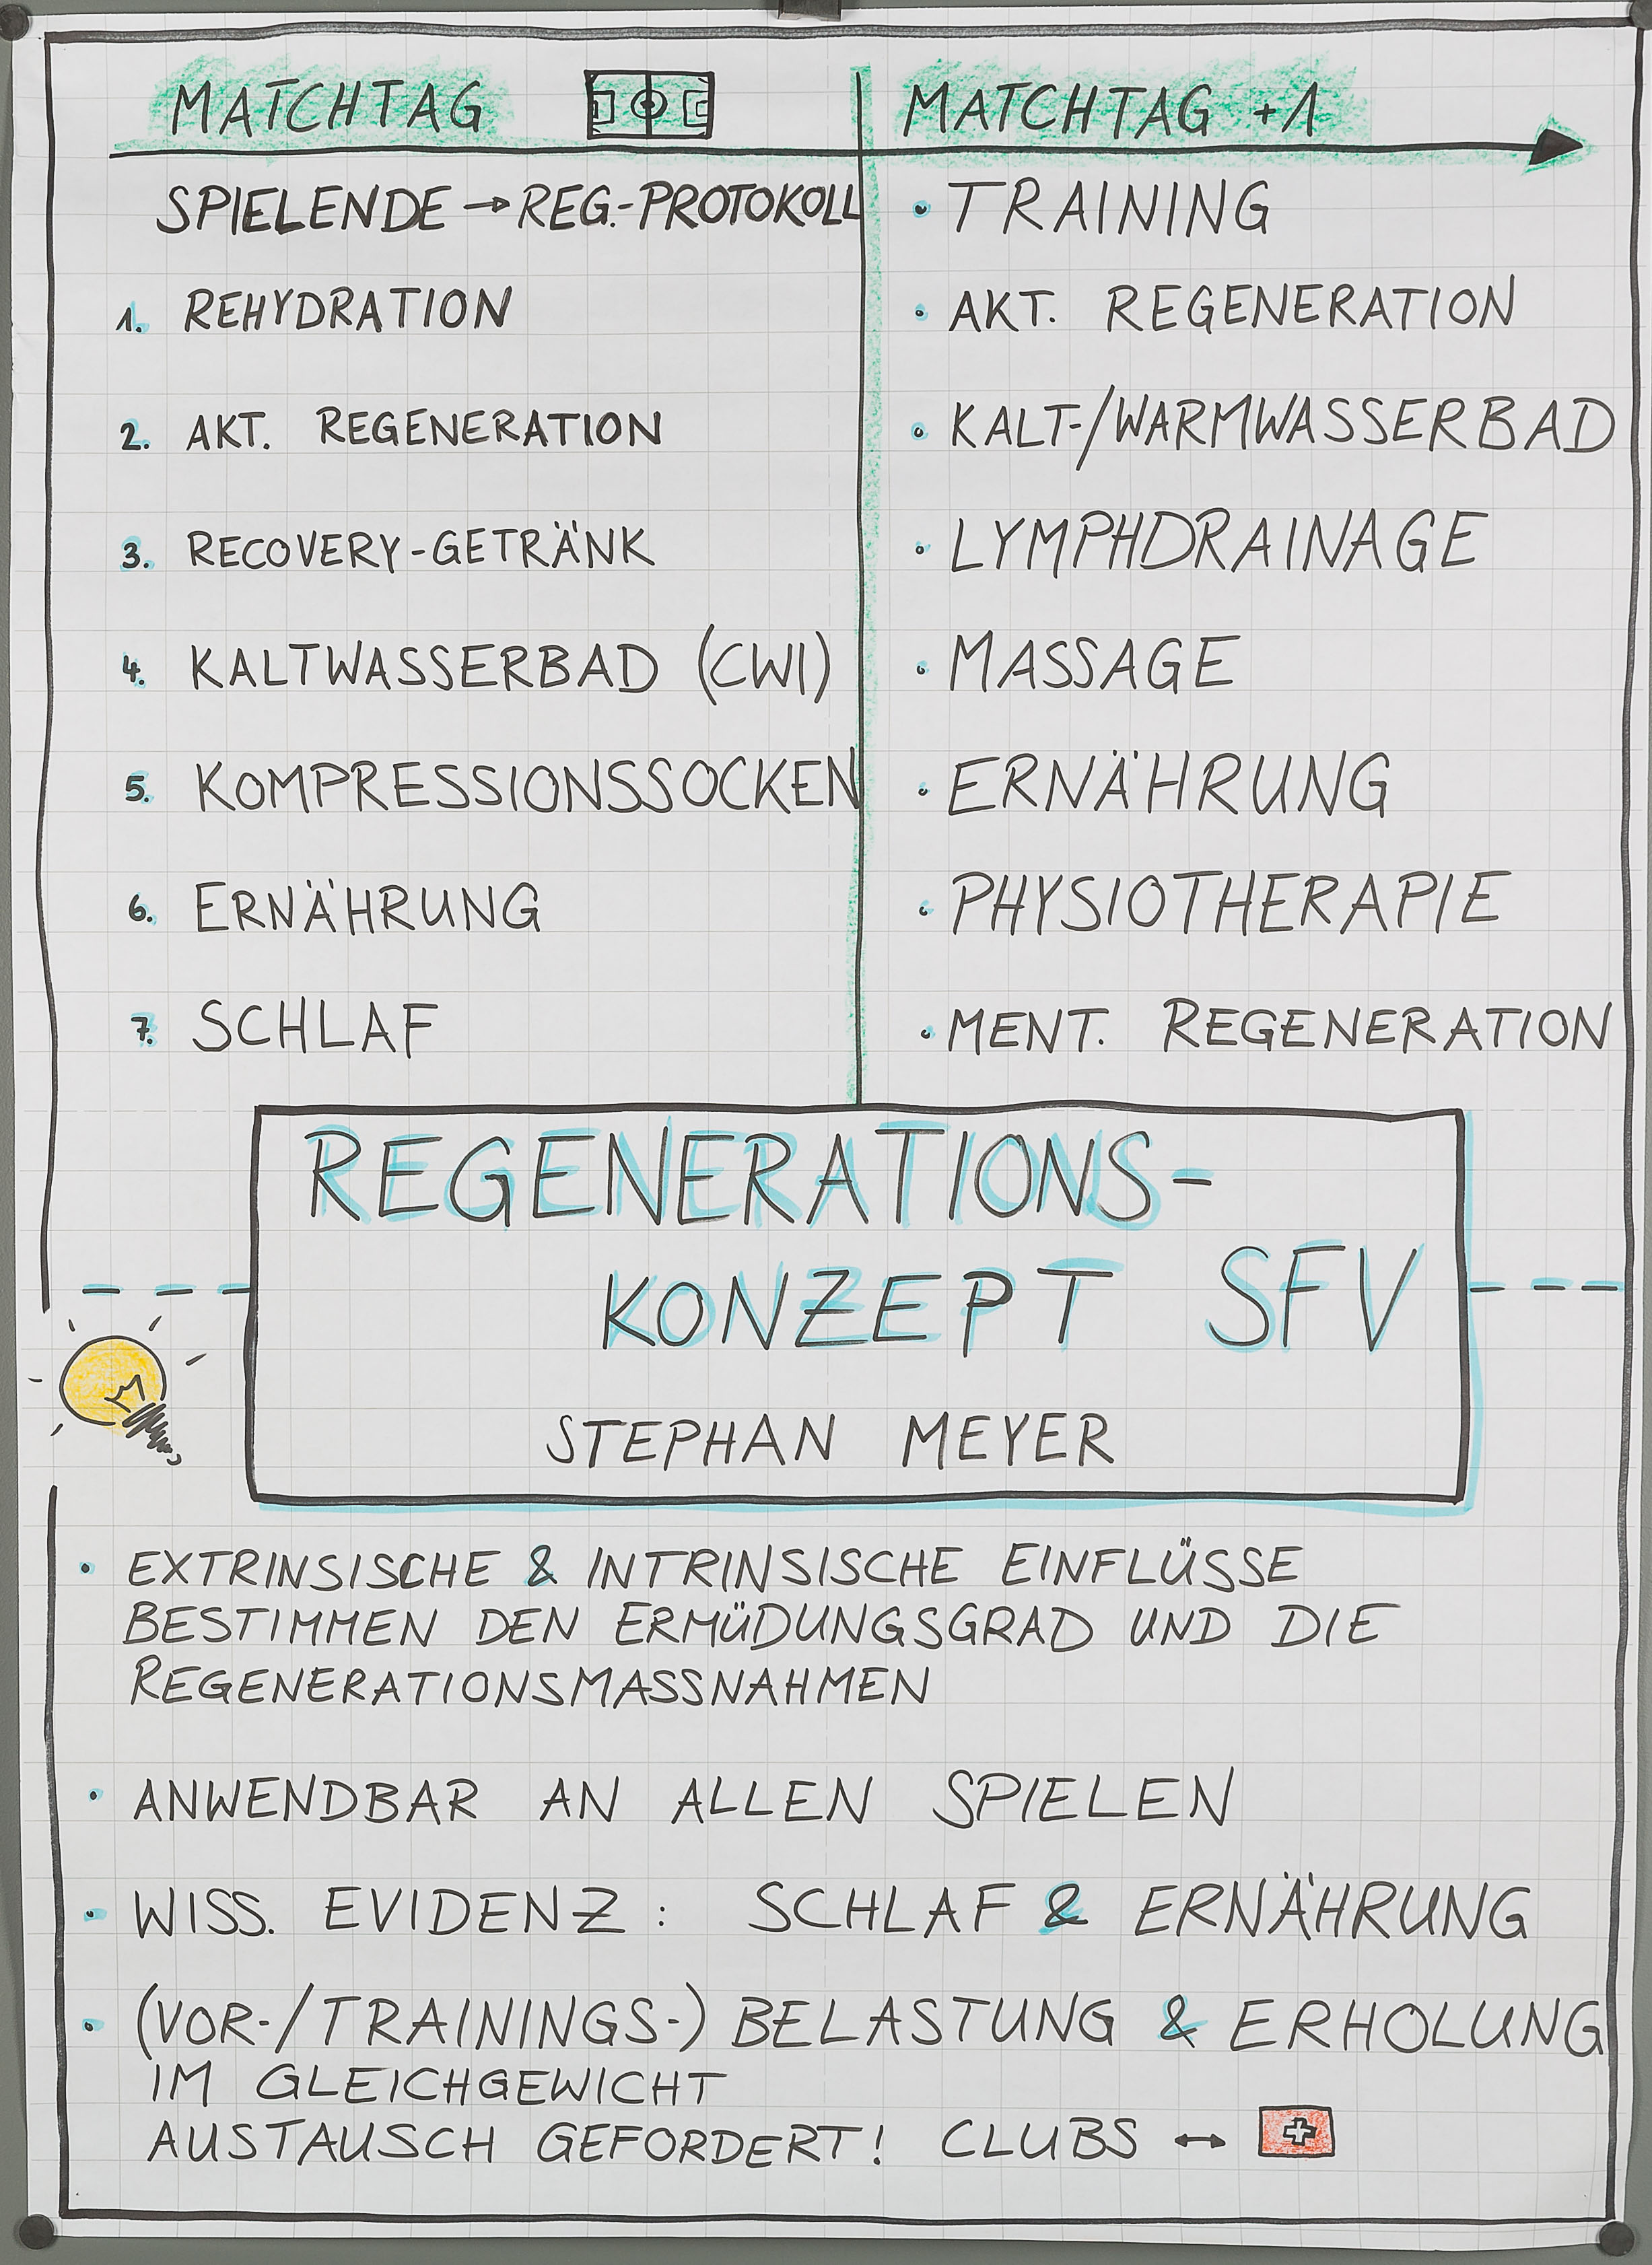 MATCHTAG
SPIELENDE → REG.-PROTOKOLL
1. REHYDRATION
2. AKT. REGENERATION
3. RECOVERY-GETRÄNK
4. KALTWASSERBAD (CWI)
5. KOMPRESSIONSSOCKEN
6. ERNÄHRUNG
7. SCHLAF
MATCHTAG +1
• TRAINING
• AKT. REGENERATION
• KALT-/WARMWASSERBAD
• LYMPHDRAINAGE
• MASSAGE
• ERNÄHRUNG
• PHYSIOTHERAPIE
• MENT. REGENERATION
REGENERATIONS-
KONZEPT SFV
STEPHAN MEYER
• EXTRINSISCHE & INTRINSISCHE EINFLÜSSE
BESTIMMEN DEN ERMÜDUNGSGRAD UND DIE
REGENERATIONSMASSNAHMEN
• ANWENDBAR AN ALLEN SPIELEN
• WISS. EVIDENZ: SCHLAF & ERNÄHRUNG
• (VOR-/TRAININGS-) BELASTUNG & ERHOLUNG
IM GLEICHGEWICHT
AUSTAUSCH GEFORDERT! CLUBS ↔